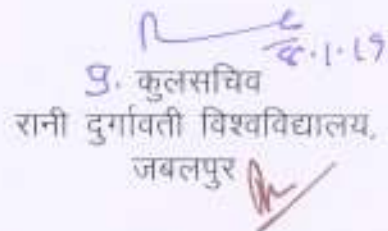 8.1.19
प्र. कुलसचिव
रानी दुर्गावती विश्वविद्यालय,
जबलपुर